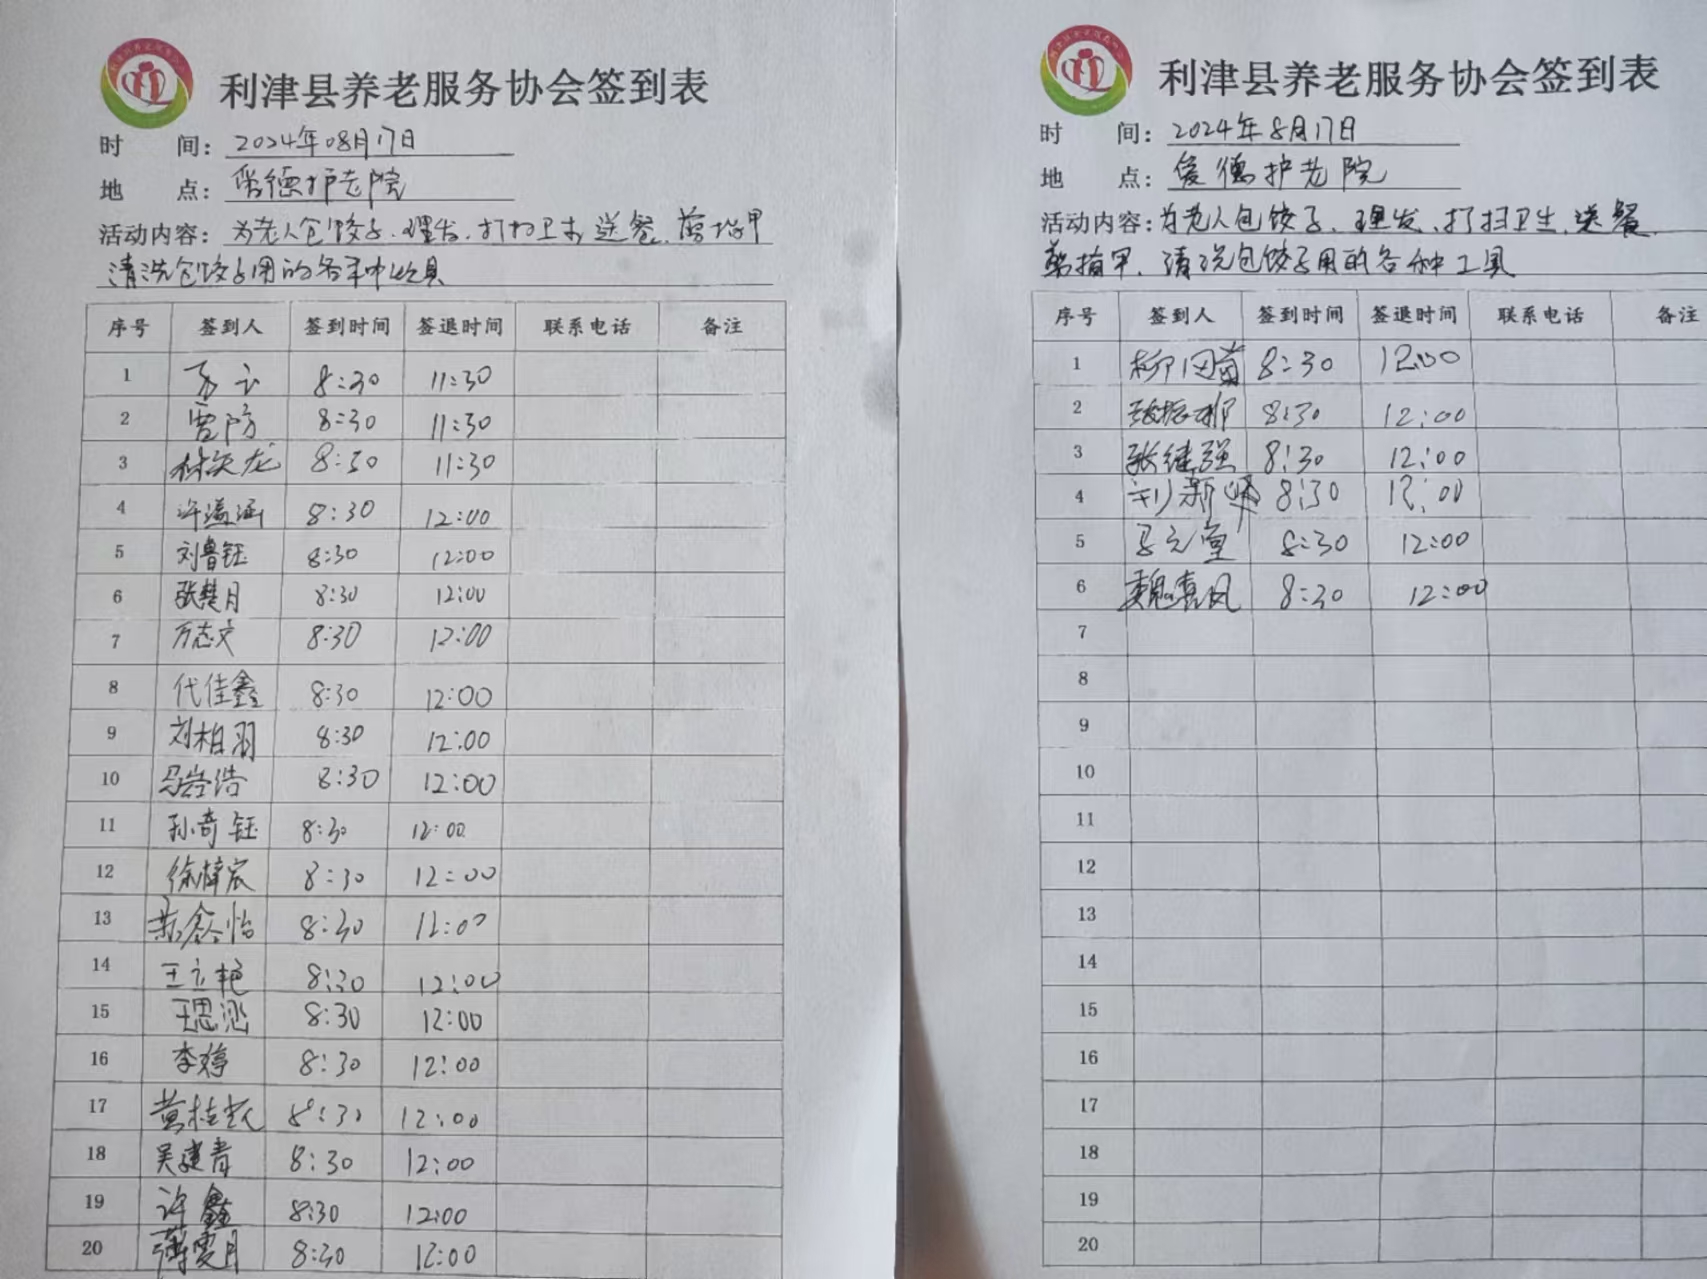 利津县养老服务协会签到表
时 间: 2024年08月17日
地 点: 爱德护老院
活动内容: 为老人包饺子、理发、打扫卫生、送餐、剪指甲
清洗包饺子用的各种工具
序号 签到人 签到时间 签退时间 联系电话 备注
1 8:30 11:30
2 贾防 8:30 11:30
3 8:30 11:30
4 许溢涵 8:30 12:00
5 刘鲁钰 8:30 12:00
6 张楚月 8:30 12:00
7 万志文 8:30 12:00
8 代佳鑫 8:30 12:00
9 刘柏羽 8:30 12:00
10 8:30 12:00
11 孙奇钰 8:30 12:00
12 徐梓宸 8:30 12:00
13 8:30 12:00
14 王立艳 8:30 12:00
15 王思涵 8:30 12:00
16 李婷 8:30 12:00
17 8:30 12:00
18 吴建青 8:30 12:00
19 许鑫 8:30 12:00
20 薄雯月 8:30 12:00
利津县养老服务协会签到表
时 间: 2024年8月17日
地 点: 爱德护老院
活动内容: 为老人包饺子、理发、打扫卫生、送餐、
剪指甲、清洗包饺子用的各种工具
序号 签到人 签到时间 签退时间 联系电话 备注
1 8:30 12:00
2 8:30 12:00
3 张继强 8:30 12:00
4 8:30 12:00
5 马元堂 8:30 12:00
6 魏喜凤 8:30 12:00
7
8
9
10
11
12
13
14
15
16
17
18
19
20